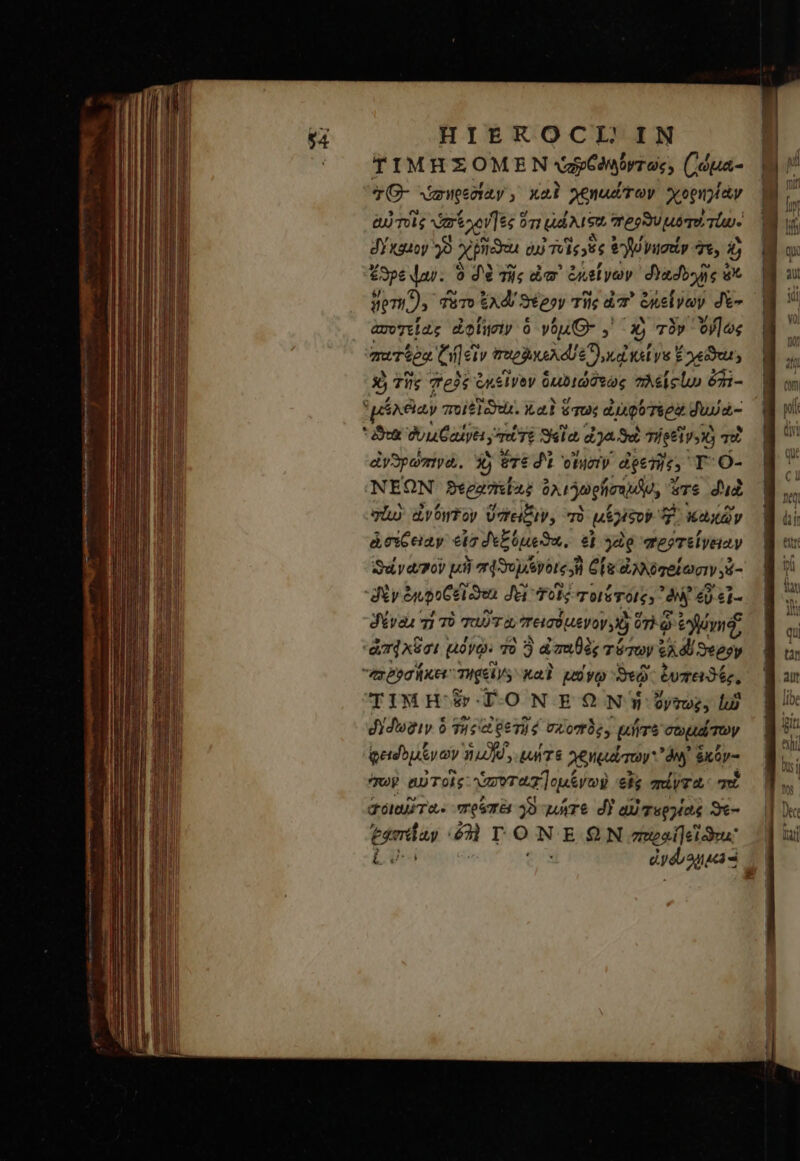 54 HIEROCL. IN
ΤΙΜΗΣΟΜΕΝ ὑπερβαλλόντως, σώμα-
τος ὑπηρεσίαν, καὶ χρημάτων χορηγίαν
αὐτοῖς ὑπέχοντες ὅτι μάλιστα προθυμοτάτην.
δίκαιον γὰρ χρῆσθαι αὐτοῖς, οὓς ἐγέννησάν τε, καὶ
ἔθρεψαν. ὃ δὲ τῆς ἀπ' ἐκείνων διαδοχῆς οὐκ
ἤρτηται, τοῦτο ἐλεύθερον τῆς ἀπ' ἐκείνων δε-
σποτείας ἀφίησιν ὁ νόμος, καὶ τὸν ὄντως
πατέρα ζητεῖν παρακελεύεται, κἀκείνου ἔχεσθαι,
καὶ τῆς πρὸς ἐκεῖνον ὁμοιώσεως πλείστην ἐπι-
μέλειαν ποιεῖσθαι. καὶ οὕτως ἀμφότερα δύνα-
σθαι συμβαίνει, τά τε θεῖα ἀγαθὰ τηρεῖν, καὶ τὰ
ἀνθρώπινα. καὶ οὔτε δι' οἴησιν ἀρετῆς, ΓΟ-
ΝΕΩΝ θεραπείας ὀλιγωρήσομεν, οὔτε διὰ
τὴν ἀνόητον ὕπειξιν, τὸ μέγιστον τῶν κακῶν
ἀσέβειαν εἰσδεξόμεθα. εἰ γὰρ προτείνειαν
θάνατον μὴ πειθομένοις, ἢ βίου ἀλλοτρίωσιν, οὐ-
δὲν ἐκφοβεῖσθαι δεῖ τοῖς τοιούτοις, ἀλλ' εὖ εἰ-
δέναι τί τὸ ταῦτα πεισόμενον, καὶ ὅτι ᾧ ἐγέννησαν
ἀπειλοῦσι μόνῳ. τὸ δὲ ἀπαθὲς τούτων ἐλεύθερον
προσήκει τηρεῖν, καὶ μόνῳ θεῷ εὐπειθές.
ΤΙΜΗ οὖν ΓΟΝΕΩΝ ἡ ὄντως, ἣν
δίδωσιν ὁ τῆς ἀρετῆς σκοπὸς, μήτε σωμάτων
φειδομένων ἡμῶν, μήτε χρημάτων· ἀλλ' ἑκόν-
των αὐτοῖς ὑποταττομένων εἰς πάντα τὰ
τοιαῦτα. πρέπει γὰρ μήτε δι' αὐτουργίας θε-
ραπείαν ἐπὶ ΓΟΝΕΩΝ παραιτεῖσθαι·